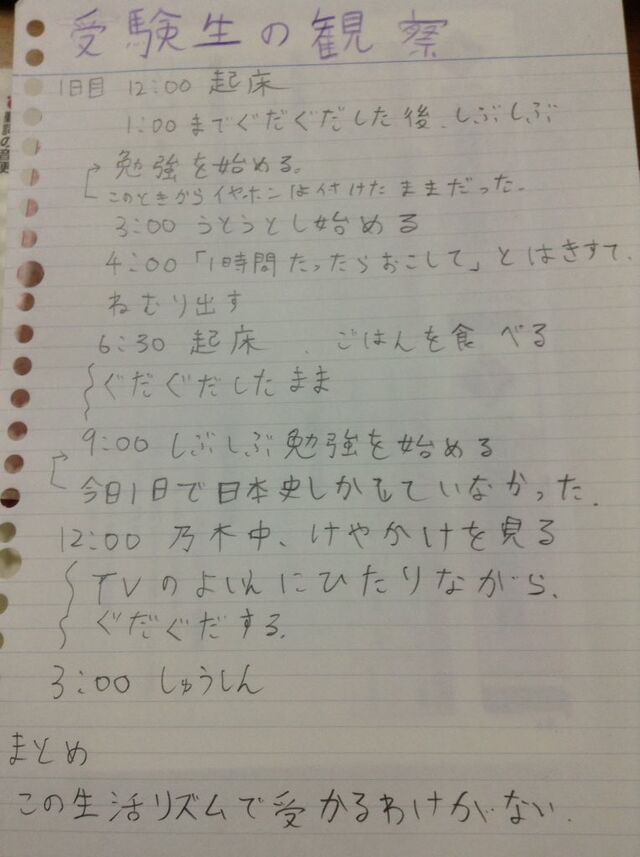 受験生の観察
1日目 12:00 起床
1:00までぐだぐだした後、しぶしぶ
勉強を始める。
このときからイヤホンは付けたままだった。
3:00 うとうとし始める
4:00 「1時間たったらおこして」とはきすて、
ねむり出す
6:30 起床 、ごはんを食べる
ぐだぐだしたまま
9:00 しぶしぶ勉強を始める
今日1日で日本史しかもていなかった。
12:00 乃木中、けやかけを見る
TVのよいんにひたりながら、
ぐだぐだする。
3:00 しゅうしん
まとめ
この生活リズムで受かるわけがない。